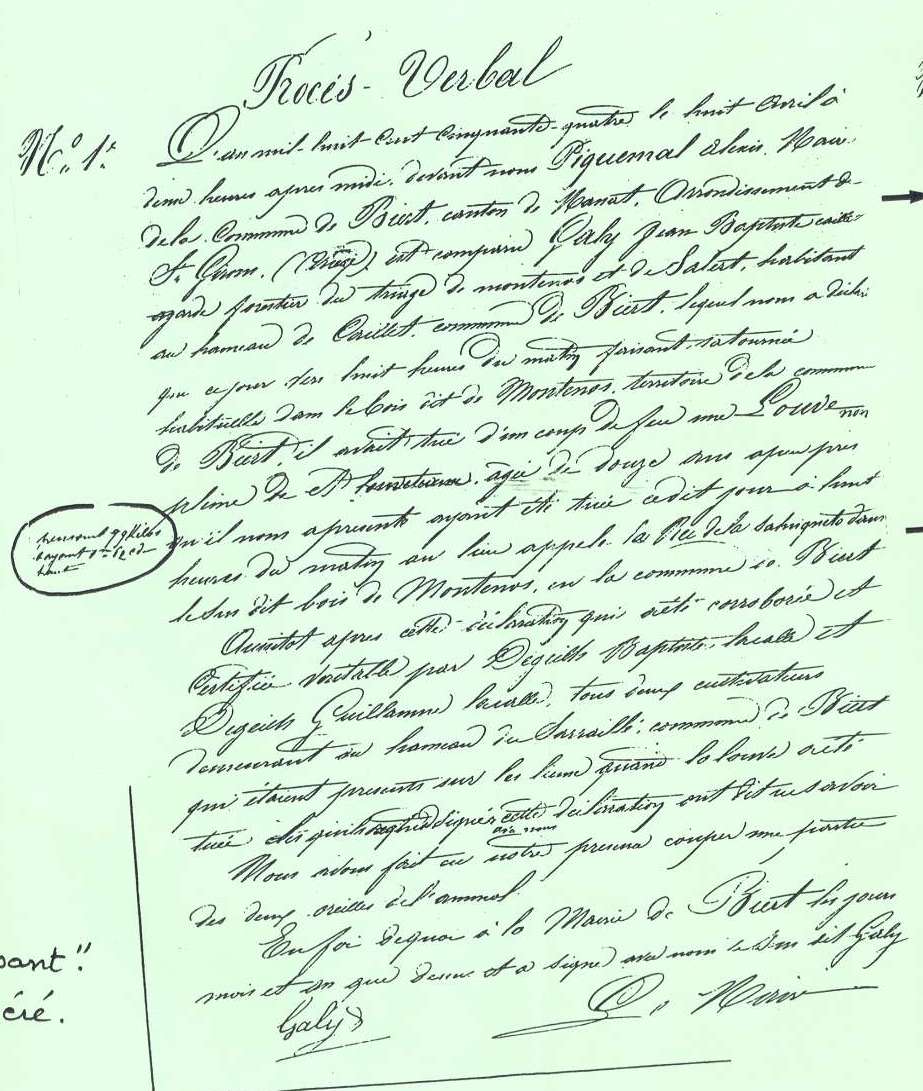 Procès-Verbal
N.° 1.
L'an mil-huit cent cinquante-quatre le huit avril à
deux heures apres midi, devant nous Piquemal Alexis, Maire
de la Commune de Biert, canton de Massat, Arrondissement de
St Girons, (Ariège) est comparu Galy Jean Baptiste
garde forestier du triage de montenos et de Salert, habitant
au hameau de Caillet, commune de Biert, lequel nous a déclaré
que ce jour vers huit heures du matin faisant sa tournée
habituelle dans le bois dit de Montenos, territoire de la commune
de Biert, il avait tué d'un coup de feu une Louve non
pleine de et, agée de douze ans apeupres
qu'il nous apresenté ayant été tuée cedit jour à huit
heures du matin au lieu appelé la dans
le sus dit bois de Montenos, en la commune de Biert
pesant 99 Kilos
ayant de
haut
Aussitot apres cette déclaration qui a été corroborée et
Certifiée véritable par Degeilh Baptiste, et
Degeilh Guillaume, tous deux cultivateurs
demeurant au hameau du Sarraillé, commune de Biert
qui étaient presents sur les lieux quand la louve a été
tuée cette déclaration ont dit ne savoir
avec nous
Nous avons fait en notre presence couper une partie
des deux oreilles de l'animal
En foi dequoi à la Mairie de Biert les jours
mois et an que dessus et a signé avec nous le dit Galy
Galy
Le Maire
pant"
céré.